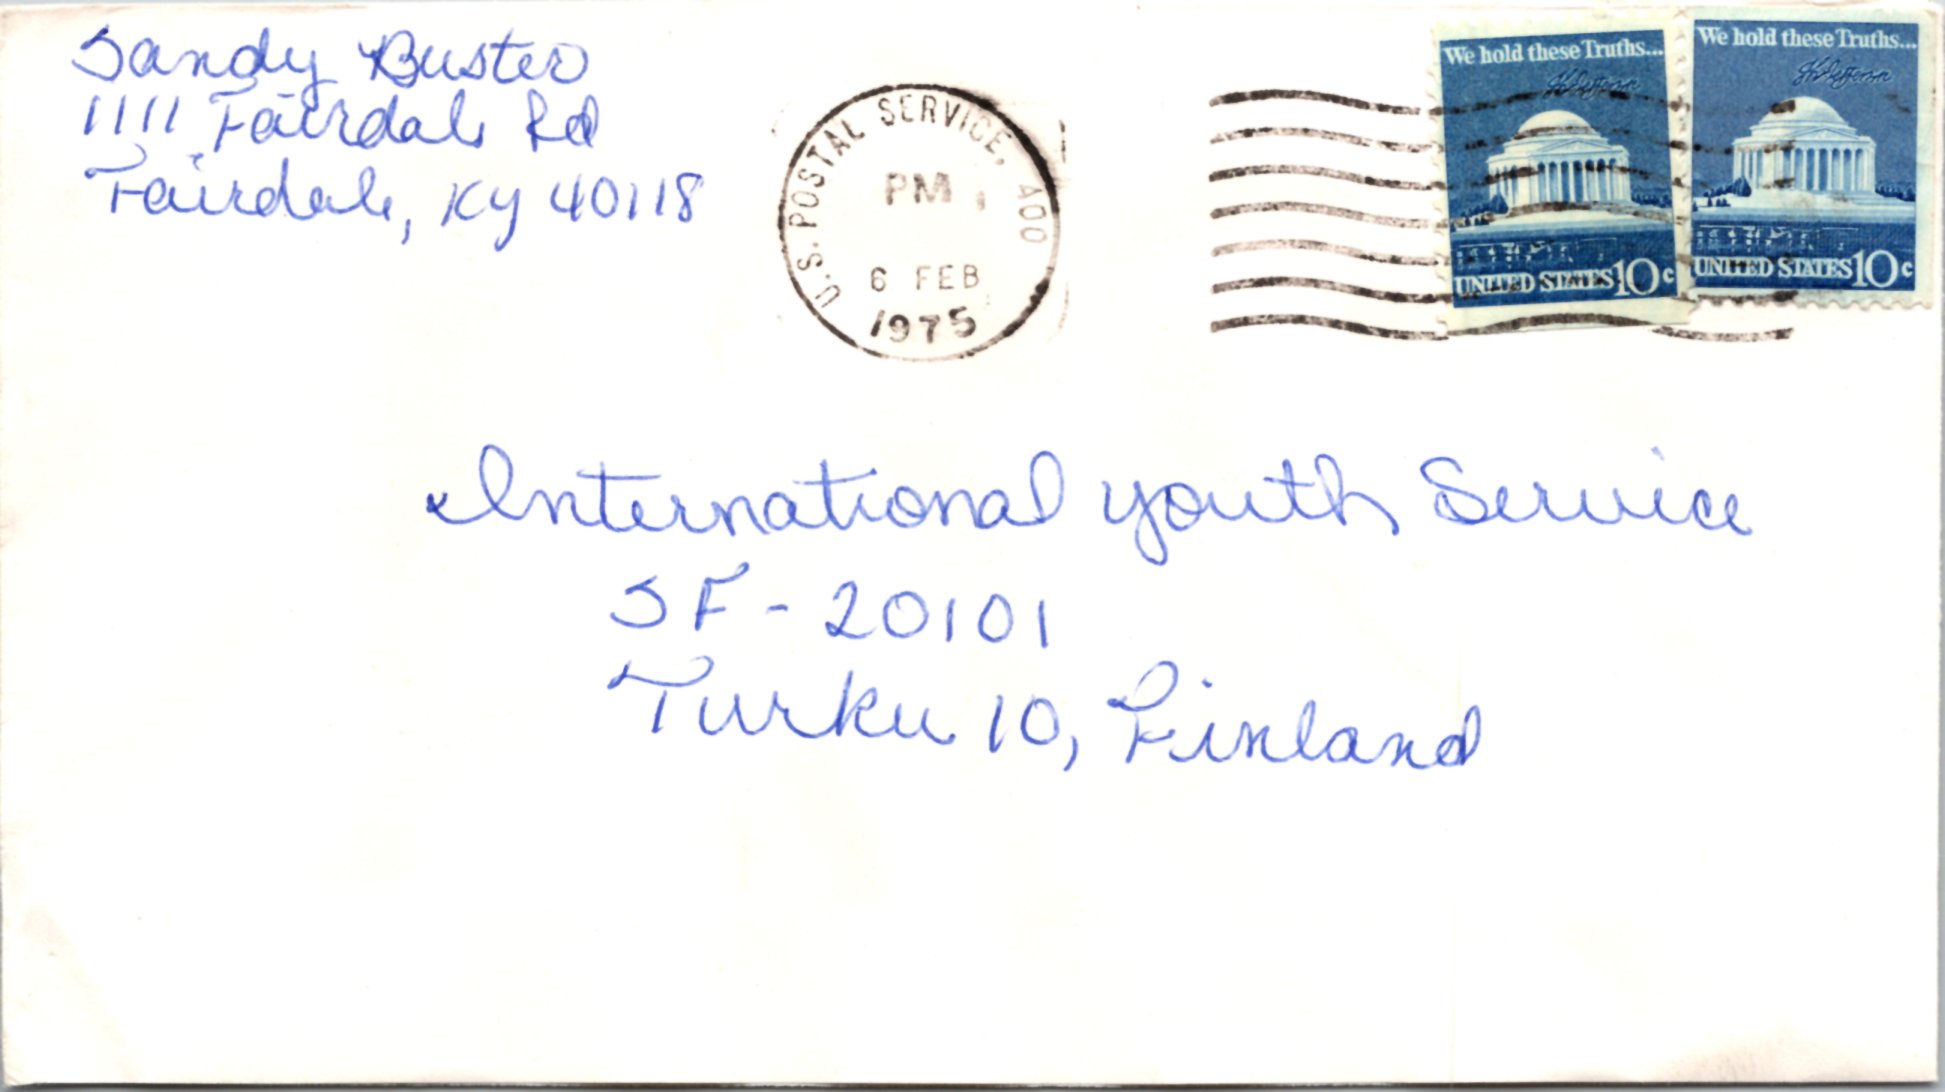 Sandy Buster
1111 Fairdale Rd
Fairdale, Ky 40118
U.S. POSTAL SERVICE, A00
PM
6 FEB
1975
We hold these Truths...
Th Jefferson
UNITED STATES 10c
We hold these Truths...
Th Jefferson
UNITED STATES 10c
International Youth Service
SF - 20101
Turku 10, Finland